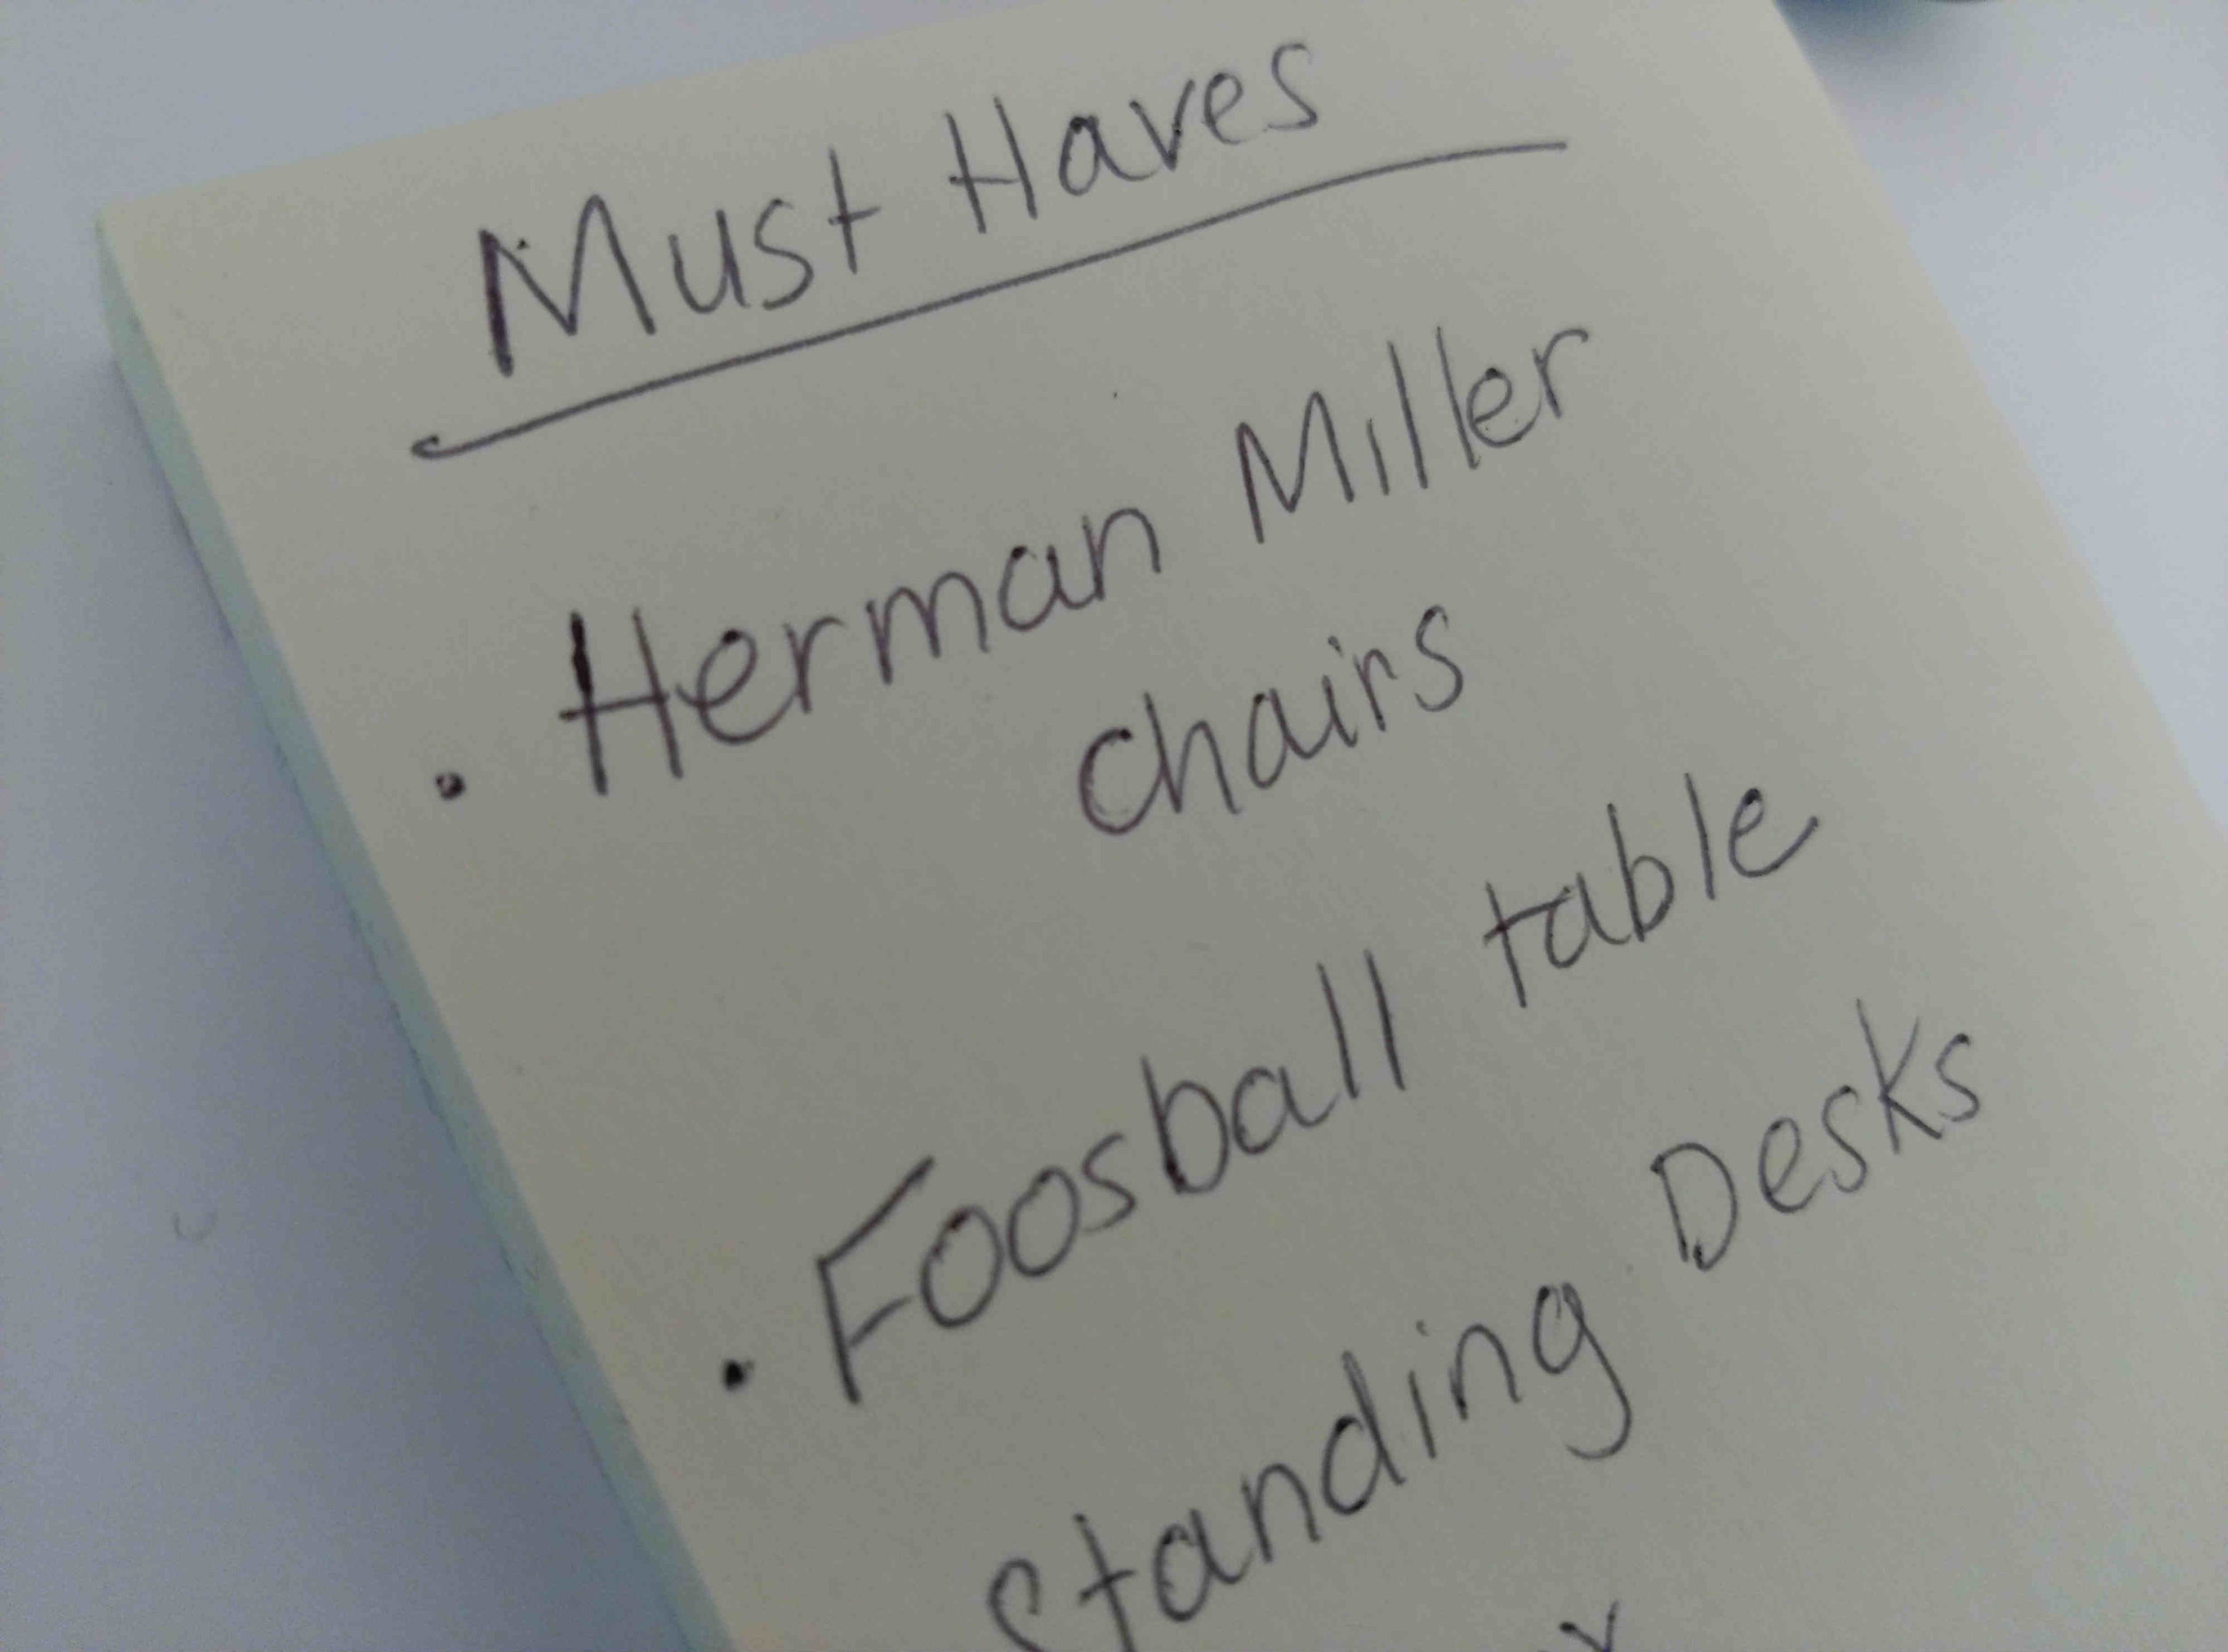 Must Haves
• Herman Miller
chairs
• Foosball table
Standing Desks